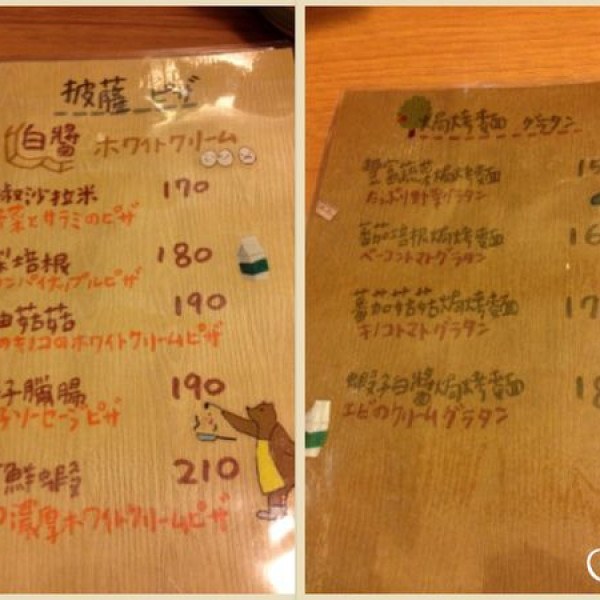 披薩 ピザ
白醬 ホワイトクリーム
椒沙拉米 170
菜とサラミのピザ
培根 180
パイナップルピザ
油菇菇 190
のキノコのホワイトクリームピザ
子臘腸 190
ソーセージピザ
鮮蝦 210
濃厚ホワイトクリームピザ
焗烤麵 グラタン
豐富蔬菜焗烤麵 15
たっぷり野菜グラタン
蕃茄培根焗烤麵 16
ベーコントマトグラタン
蕃茄菇菇焗烤麵 17
キノコトマトグラタン
蝦子白醬焗烤麵 18
エビのクリームグラタン